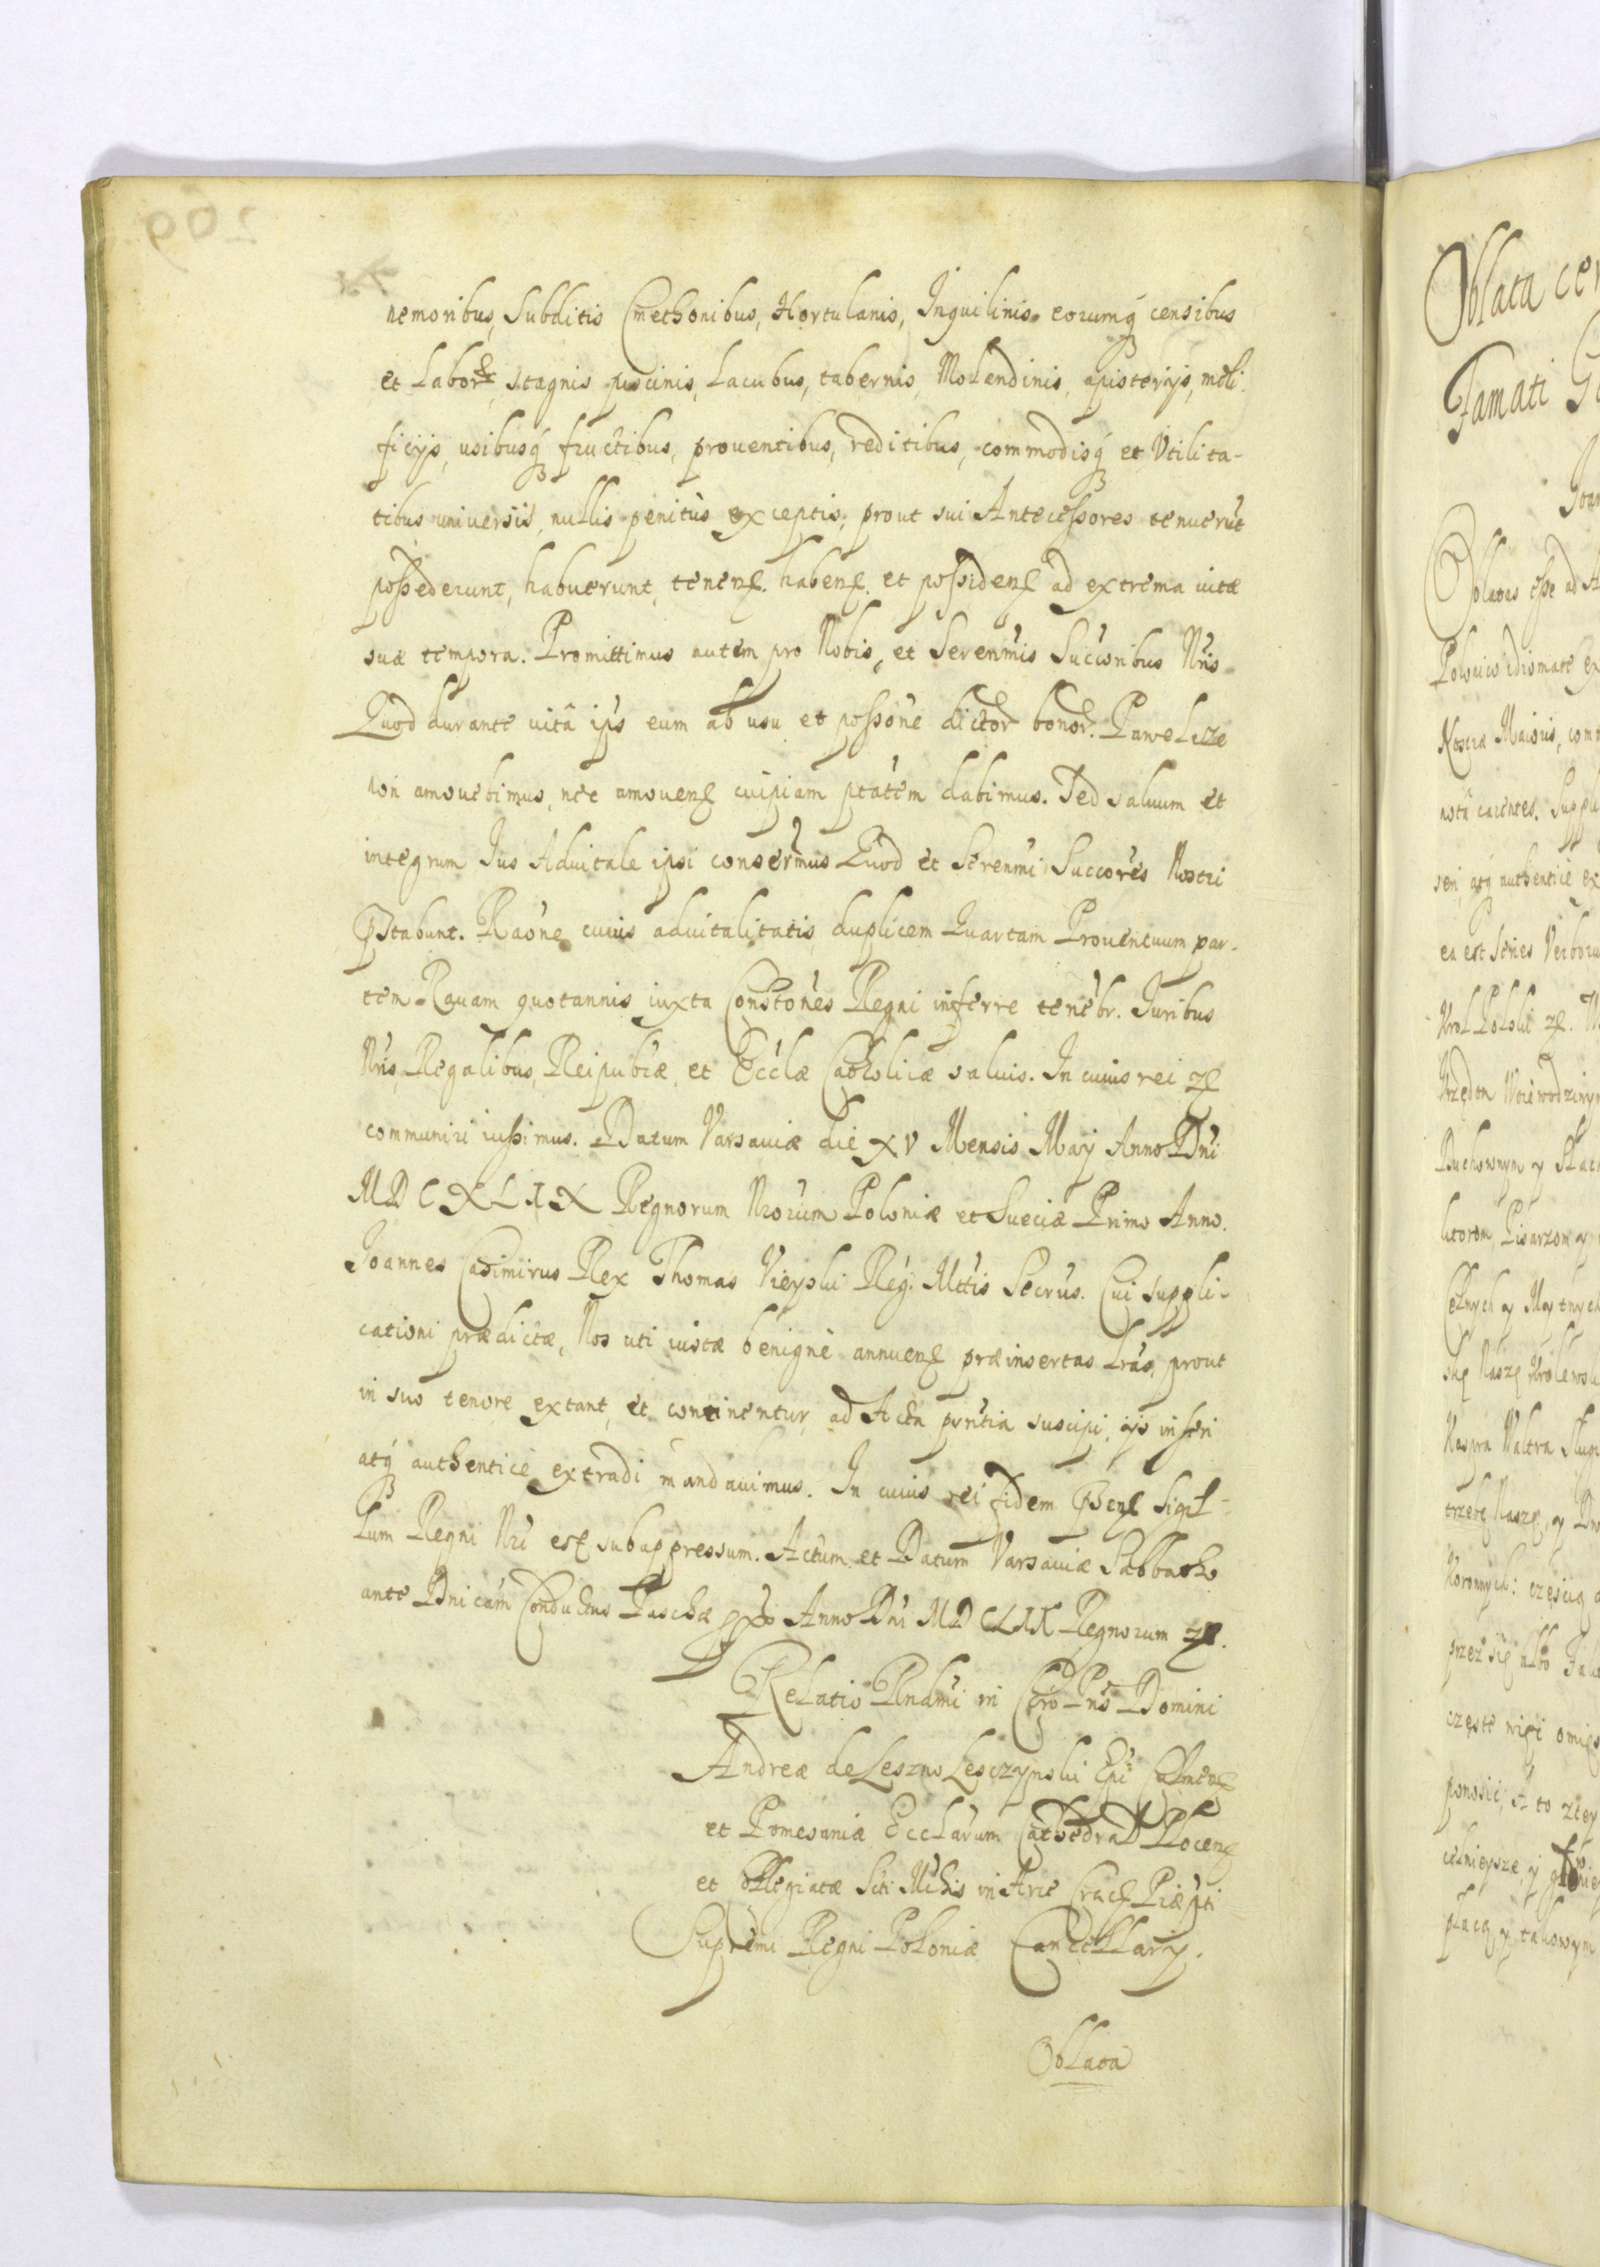 nemoribus, Subditis Cmethonibus, Hortulanis, Inquilinis eorumq́ censibus
et Labor, stagnis piscinis, Lacubus, tabernis, Molendinis, apisterijs, meli
ficijs, usibusq́ fructibus, prouentibus, reditibus, commodisq́ et Vtilita-
tibus universis, nullis penitùs exceptis, prout sui Antecessores tenuerūt
possederunt, habuerunt, tenen habens et possidens ad extrema vitæ
suæ tempora. Promittimus autem pro Nobis, et Serenmis Succoribus Nris
Quod durante vitâ ips eum ab usu et possone dictor bonor. Pawelcze
non amouebimus, nec amouen cuipiam ptatem dabimus. Sed saluum et
integrum Ius Aduitale ipsi consermus Quod et Serenmi Succores Nostri
Pstabunt. Raone cuius aduitalitatis duplicem Quartam Prouentuum par-
tem quotannis iuxta Constones Regni inferre tenebr. Iuribus
Nris, Regalibus, Reipubcæ et Ecclæ Catholicæ saluis. In cuius rei
communiri iussimus. Datum Varsauiæ die XV Mensis Maij Anno Dni
MDCXLIX Regnorum Nrorum Poloniæ et Sueciæ Primo Anno.
Joannes Casimirus Rex Thomas Vieyski Reg. Mttis Secrus. Cui suppli-
cationi prædictæ, Nos uti iustæ benignè annuen præinsertas Lras, prout
in suo tenore extant, et continentur, ad Acta prntia suscipi, ijs inseri
atq́ authenticè extradi mandauimus. In cuius rei fidem Psen Sigil-
lum Regni Nri est subappressum. Actum et Datum Varsauiæ Sabbatho
ante Dnicam Conductus Paschæ pxo Anno Dni MDCLIX Regnorum
Relatio Rndmi in Chro Pris Domini
Andreæ de Leszno Lesczynski Epi Culmen
et Pomesaniæ Ecclarum Cathedral Plocen
et Collegiatæ Scti Michis in Arce Crac Præpti
Supremi Regni Poloniæ Cancellarij.
Oblata
Oblata
Famati
Oblatas esse ad A
Polonico idiomate ex
Nostræ Maioris, com
notâ carentes. Suppli
seri, atq́ authenticè ex
ea est Series Verboru
Krol Polski
Vrzędom Woiewodzinym
Duchownym y Szlach
Pisarzom y
Celnych y Mytnych